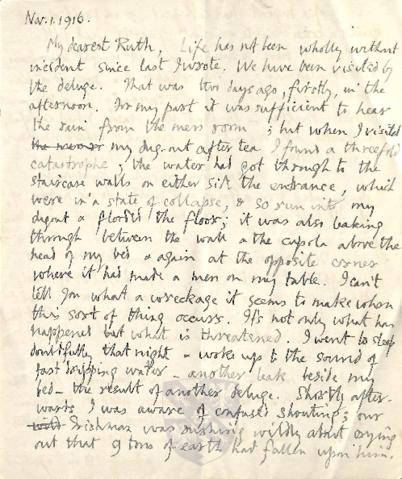 Nov. 1. 1916.
My dearest Ruth, Life has not been wholly without
incident since last I wrote. We have been visited by
the deluge. That was two days ago, firstly, in the
afternoon. For my part it was sufficient to hear
the rain from the mess room; but when I visited
my dug-out after tea I found a threefold
catastrophe; the water had got through to the
staircase walls on either side the entrance, which
were in a state of collapse, & so run into my
dugout & flooded the floor; it was also leaking
through between the wall & the cupola above the
head of my bed & again at the opposite corner
where it had made a mess on my table. I can't
tell you what a wreckage it seems to make when
this sort of thing occurs. It's not only what has
happened but what is threatened. I went to sleep
doubtfully that night & woke up to the sound of
fast dripping water – another leak beside my
bed – the result of another deluge. Shortly after-
wards I was aware of confused shouting; our
Irishman was rushing wildly about crying
out that 9 tons of earth had fallen upon him.